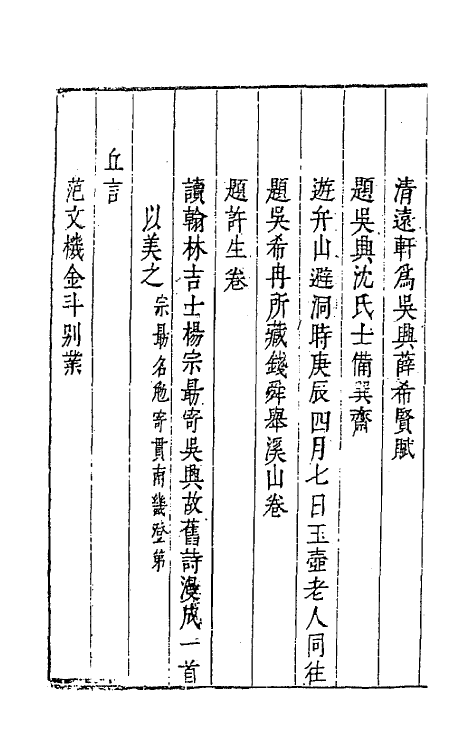 清遠軒爲吳興薛希賢賦
題吳興沈氏士備巽齋
遊弁山避洞時庚辰四月七日玉壺老人同往
題吳希冉所藏錢舜舉溪山卷
題許生卷
讀翰林吉士楊宗勗寄吳興故舊詩漫成一首
以美之宗勗名勉寄貫南畿登第
五言
范文機金斗別業